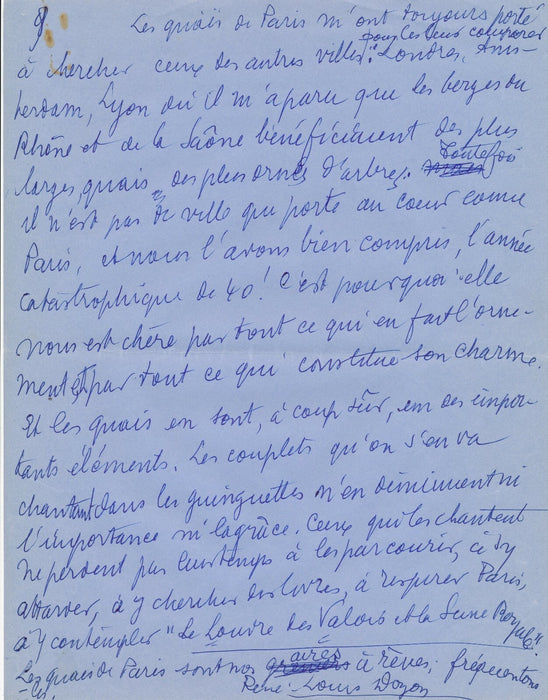 9
Les quais de Paris m'ont toujours porté
pour les leur comparer
à chercher ceux des autres villes: Londres, Ams-
terdam, Lyon où il m'a paru que les berges du
Rhône et de la Saône bénéficiaient des plus
larges quais et des plus ornés d'arbres. Toutefois
il n'est pas de ville qui porte au coeur comme
Paris, et nous l'avons bien compris, l'année
catastrophique de 40! C'est pourquoi elle
nous est chère par tout ce qui en fait l'orne-
ment et par tout ce qui constitue son charme.
Et les quais en sont, à coup sûr, un des impor-
tants éléments. Les couplets qu'on s'en va
chantant dans les guinguettes n'en diminuent ni
l'importance ni la grâce. Ceux qui les chantent
ne perdent pas leur temps à les parcourir, à s'y
attarder, à y chercher des livres, à respirer Paris,
à y contempler "Le Louvre des Valois et la Seine Royale".
Les quais de Paris sont nos aires à rêves; fréquentons
-les.
René-Louis Doyon